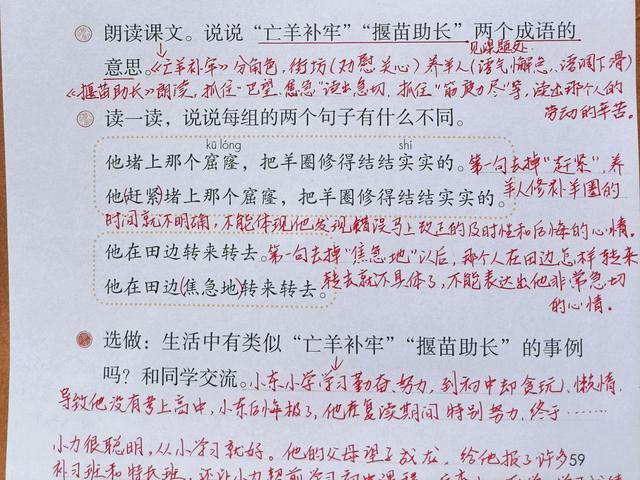 朗读课文。说说“亡羊补牢”“揠苗助长”两个成语的
见课题处.
意思。《亡羊补牢》分角色，街坊(劝慰关心)养羊人(语气懈怠、语调下滑)
《揠苗助长》朗读，抓住“巴望、焦急”读出急切，抓住“筋疲力尽”等，读出那个人的
劳动的辛苦。
读一读，说说每组的两个句子有什么不同。
kū lóng shí
他堵上那个窟窿，把羊圈修得结结实实的。第一句去掉“赶紧”，养
他(赶紧)堵上那个窟窿，把羊圈修得结结实实的。羊人修补羊圈的
时间就不明确，不能体现他发现错误马上改正的及时性和后悔的心情。
他在田边转来转去。第一句去掉“焦急地”以后，那个人在田边怎样转来
他在田边(焦急地)转来转去。转去就不具体了，不能表达出他非常急切
的心情。
选做：生活中有类似“亡羊补牢”“揠苗助长”的事例
吗？和同学交流。小东小学学习勤奋、努力，到初中却贪玩、懒惰，
导致他没有考上高中，小东后悔极了，他在复读期间特别努力，终于……
小力很聪明，从小学习就好。他的父母望子成龙，给他报了许多59
补习班和特长班，还让小力提前学习初中课程